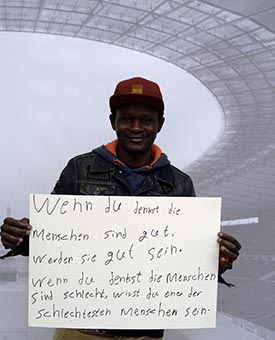 Wenn du denkst die
Menschen sind gut.
Werden sie gut sein.
Wenn du denkst die Menschen
sind schlecht, wirst du einer der
schlechtesten Menschen sein.